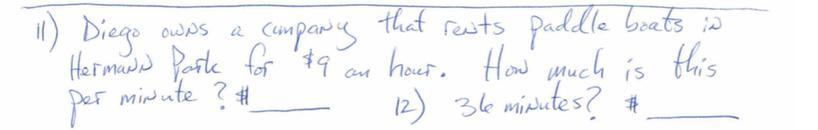 11) Diego owns a company that rents paddle boats in
Hermann Park for $9 an hour. How much is this
per minute? $______ 12) 36 minutes? $______